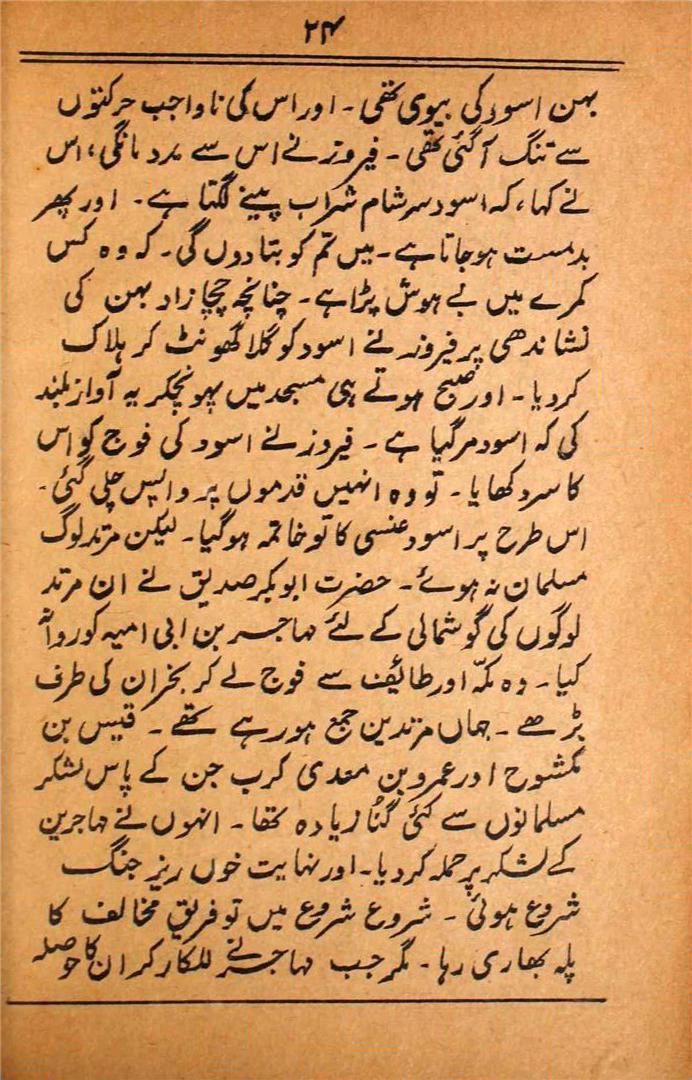 ۲۴
بہن اسود کی بیوی تھی۔ اور اس کی ناواجب حرکتوں
سے تنگ آگئی تھی۔ فیروز نے اس سے مدد مانگی، اس
نے کہا، کہ اسود سرشام شراب پینے لگتا ہے۔ اور پھر
بدمست ہوجاتا ہے۔ میں تم کو بتادوں گی۔ کہ وہ کس
کمرے میں بے ہوش پڑا ہے۔ چنانچہ چچازاد بہن کی
نشاندھی پر فیروز نے اسود کو گلا گھونٹ کر ہلاک
کردیا۔ اور صبح ہوتے ہی مسجد میں پہونچکر یہ آواز بلند
کی کہ اسود مرگیا ہے۔ فیروز نے اسود کی فوج کو اس
کا سر دکھایا۔ تو وہ انہیں قدموں پر واپس چلی گئی۔
اس طرح پر اسود عنسی کا تو خاتمہ ہوگیا۔ لیکن مرتد لوگ
مسلمان نہ ہوئے۔ حضرت ابوبکر صدیق نے ان مرتد
لوگوں کی گوشمالی کے لئے مہاجر بن ابی امیہ کو روانہ
کیا۔ وہ مکہّ اور طائف سے فوج لے کر نجران کی طرف
بڑھے۔ جہاں مرتدین جمع ہورہے تھے۔ قیس بن
مکشوح اور عمرو بن معدی کرب جن کے پاس لشکر
مسلمانوں سے کئی گُنا زیادہ تھا۔ انہوں نے مہاجرین
کے لشکر پر حملہ کردیا۔ اور نہایت خوں ریز جنگ
شروع ہوئی۔ شروع شروع میں تو فریق مخالف کا
پلہ بھاری رہا۔ مگر جب مہاجر نے للکار کر ان کا حوصلہ